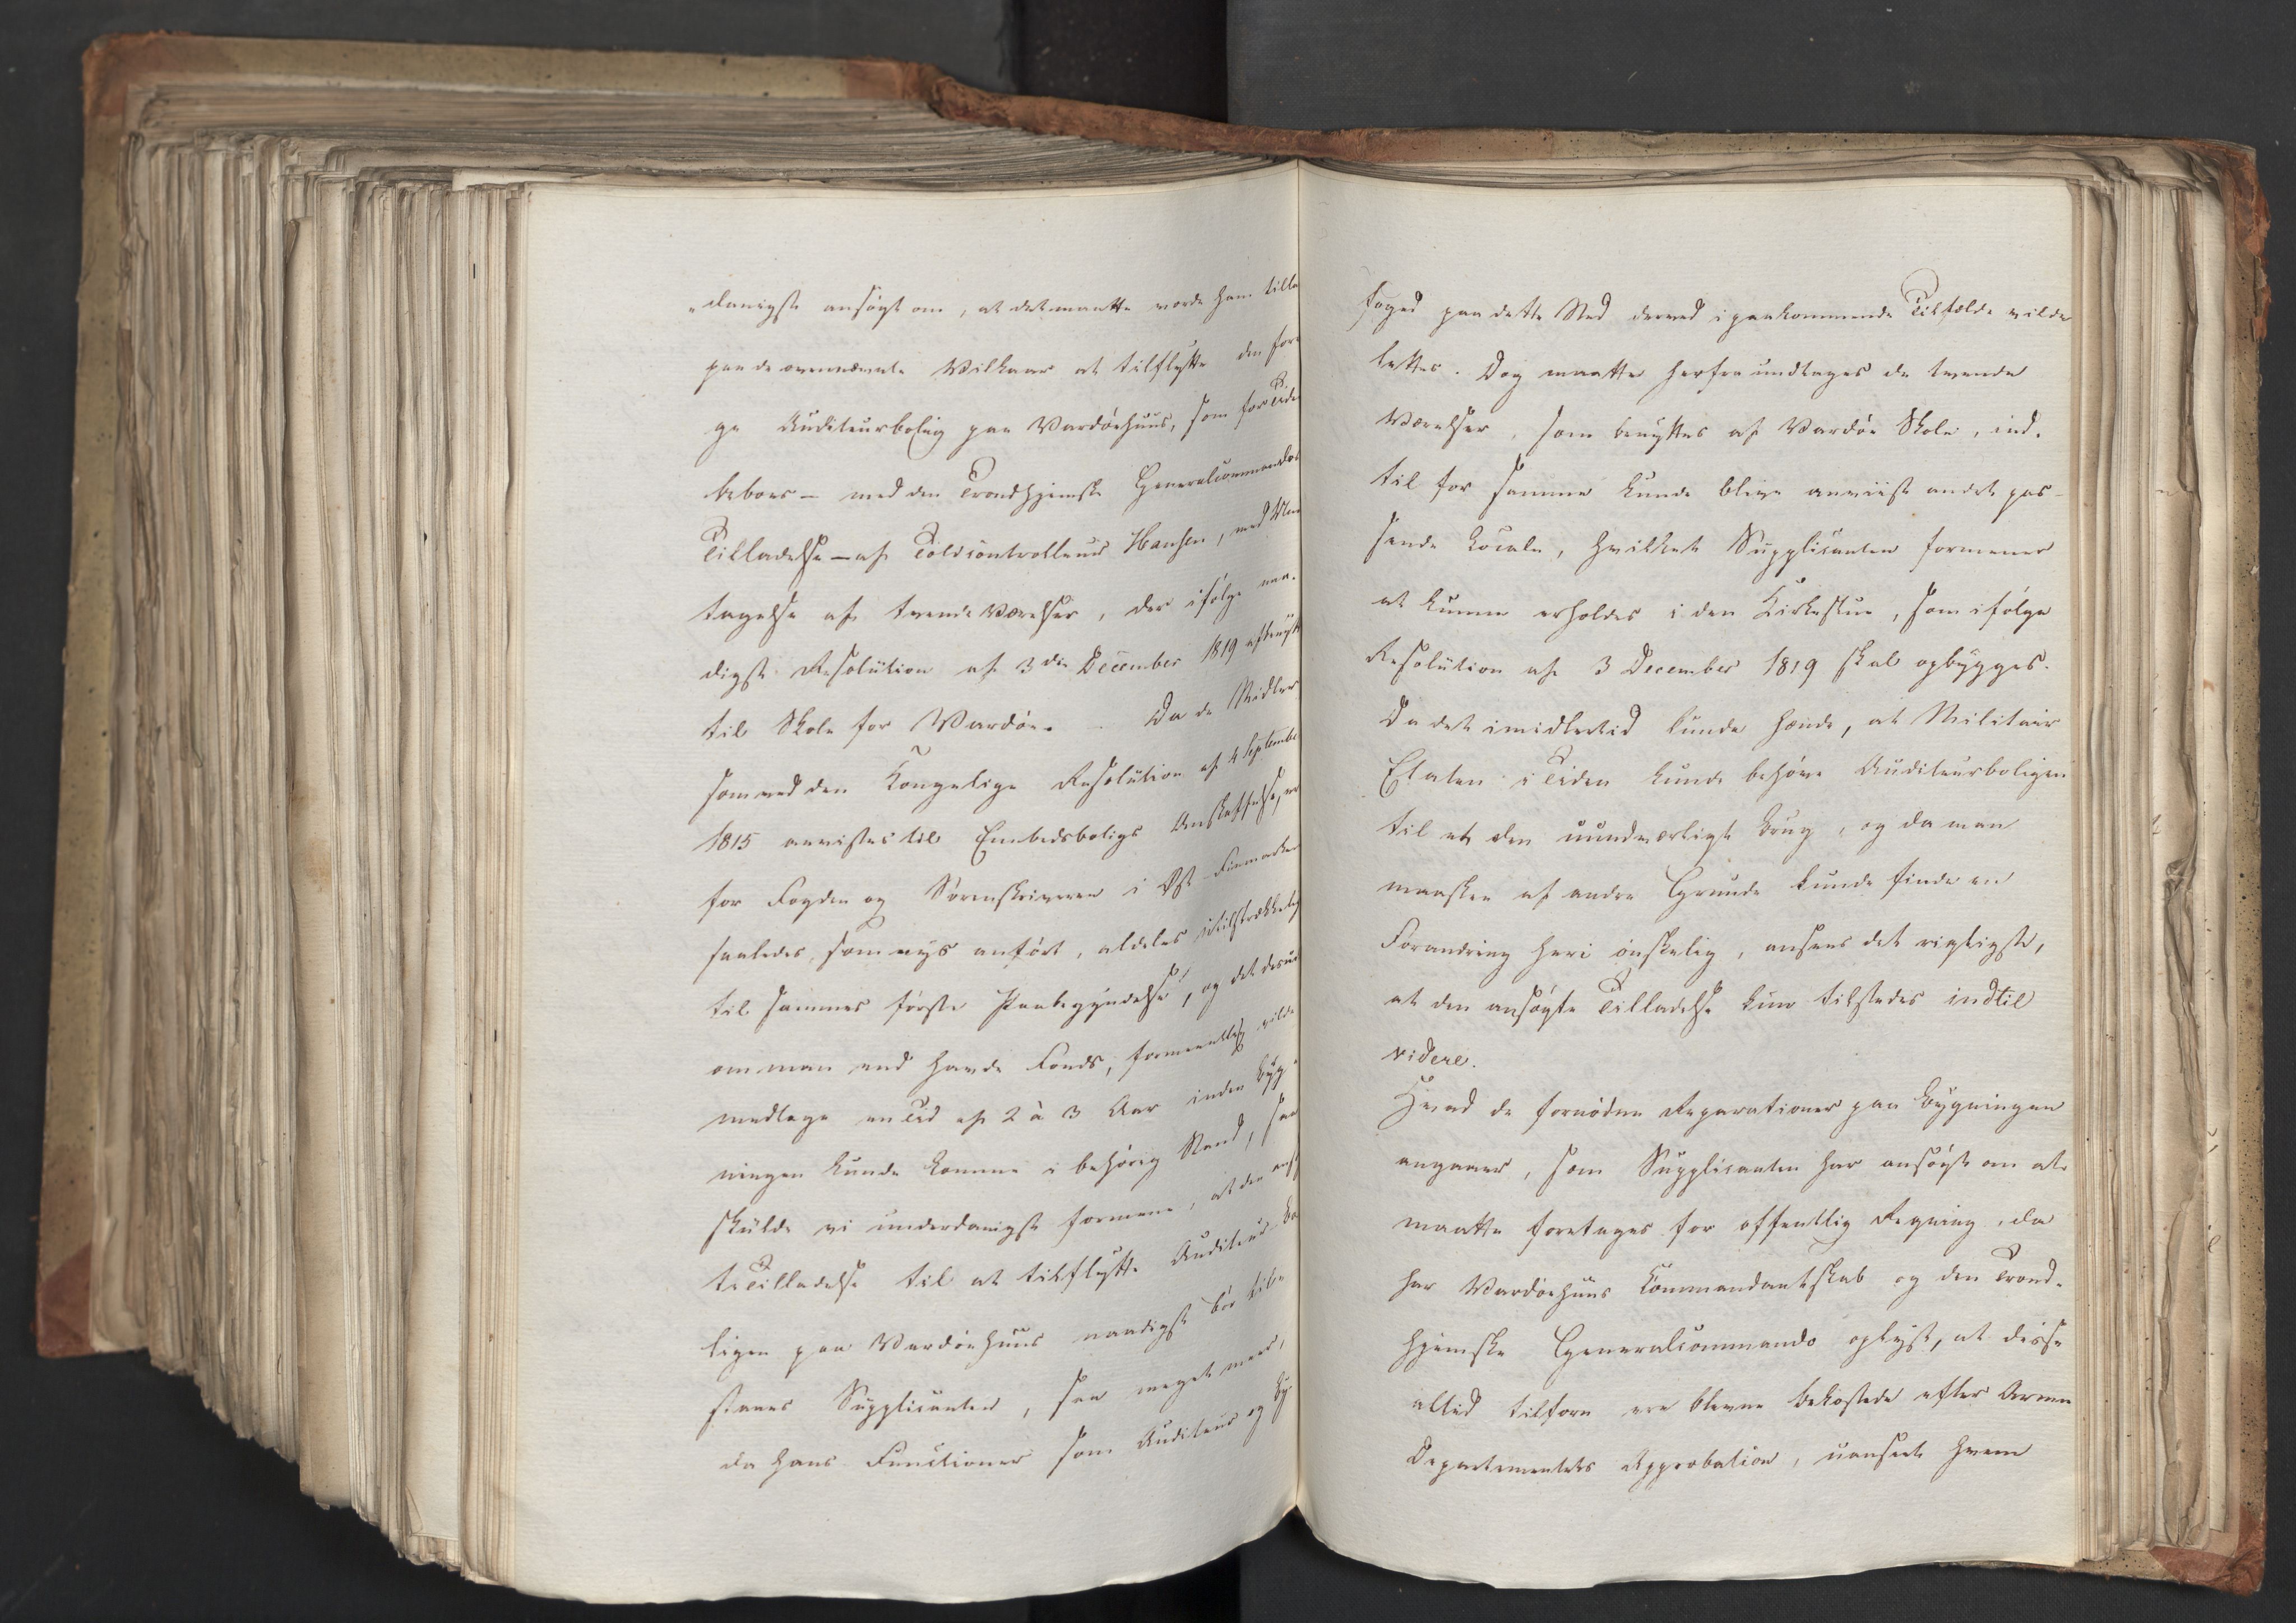 „danigst ansøgt om, at det maatte vorde ham tilla
paa de ovennævnte Vilkaar at tilflytte den for
ge Auditeurbolig paa Vardøehuus, som for Tide
beboes – med den Trondhjemske Generalcommandos
Tilladelse – af Toldcontrolleur Hansen, med Und
tagelse af tvende Værelser, der ifølge naa-
digst Resolution af 3die December 1819 afbenytt
til Skole for Vardøe. – Da de Midler
som ved den Kongelige Resolution af 4 Septembr
1815 anvistes til Embedsboligs Anskaffelse,
for Fogden og Sorenskriveren i Øst-Finmarken
saaledes, som nys anført, aldeles utilstrækkelig
til sammes første Paabegyndelse, og det desud
om man end havde Fonds, formeentlig vilde
medtage en Tid af 2 à 3 Aar inden Byg-
ningen kunde komme i behørig Stand, saa
skulde vi underdanigst formene, at den ansø
te Tilladelse til at tilflytte Auditeur-Bo
ligen paa Vardøehuus naadigst bør tile
staaes Supplicanten, saa meget meer,
da hans Functioner som Auditeur og By
foged paa dette Sted derved i paakommende Tilfælde vilde
lettes. Dog maatte herfra undtages de tvende
Værelser, som benyttes af Vardøe Skole, ind-
til for samme kunde blive anviist andet pas-
sende Locale, hvilket Supplicanten formener
at kunne erholdes i den Kirkestue, som ifølge
Resolution af 3 December 1819 skal opbygges.
Da det imidlertid kunde hænde, at Militair
Etaten i Tiden kunde behøve Auditeurboligen
til et den uundværligt Brug, og da man
maaskee af andre Grunde kunde finde en
Forandring heri ønskelig, ansees det rigtigst,
at den ansøgte Tilladelse kun tilstedes indtil
videre.
Hvad de fornødne Reparationer paa Bygningen
angaaer, som Supplicanten har ansøgt om at
maatte foretages for offentlig Regning, da
har Vardøehuus Commandantskab og den Trond-
hjemske Generalcommando oplyst, at disse
altid tilforn ere blevne bekostede efter Armee
Departementets Approbation, uanseet hvem